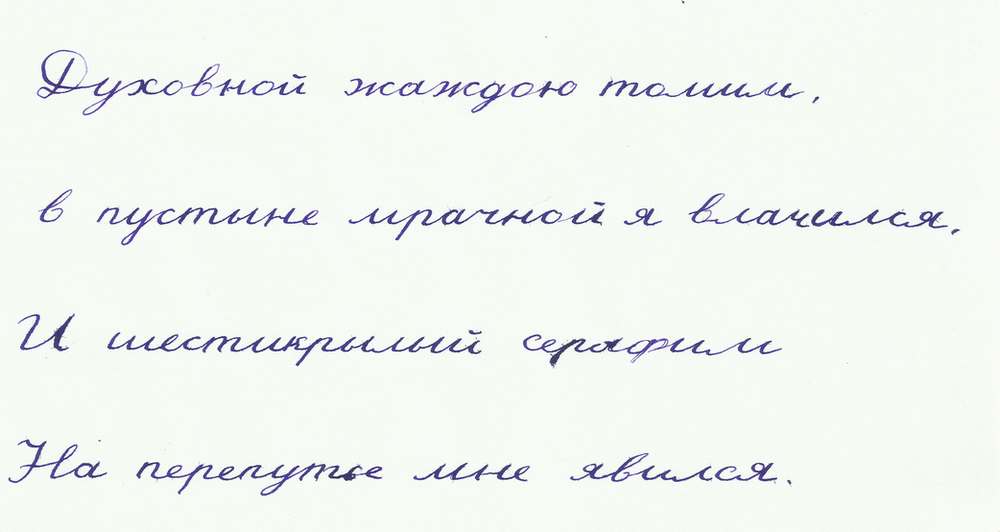 Духовной жаждою томим,
в пустыне мрачной я влачился,
И шестикрылый серафим
На перепутье мне явился.